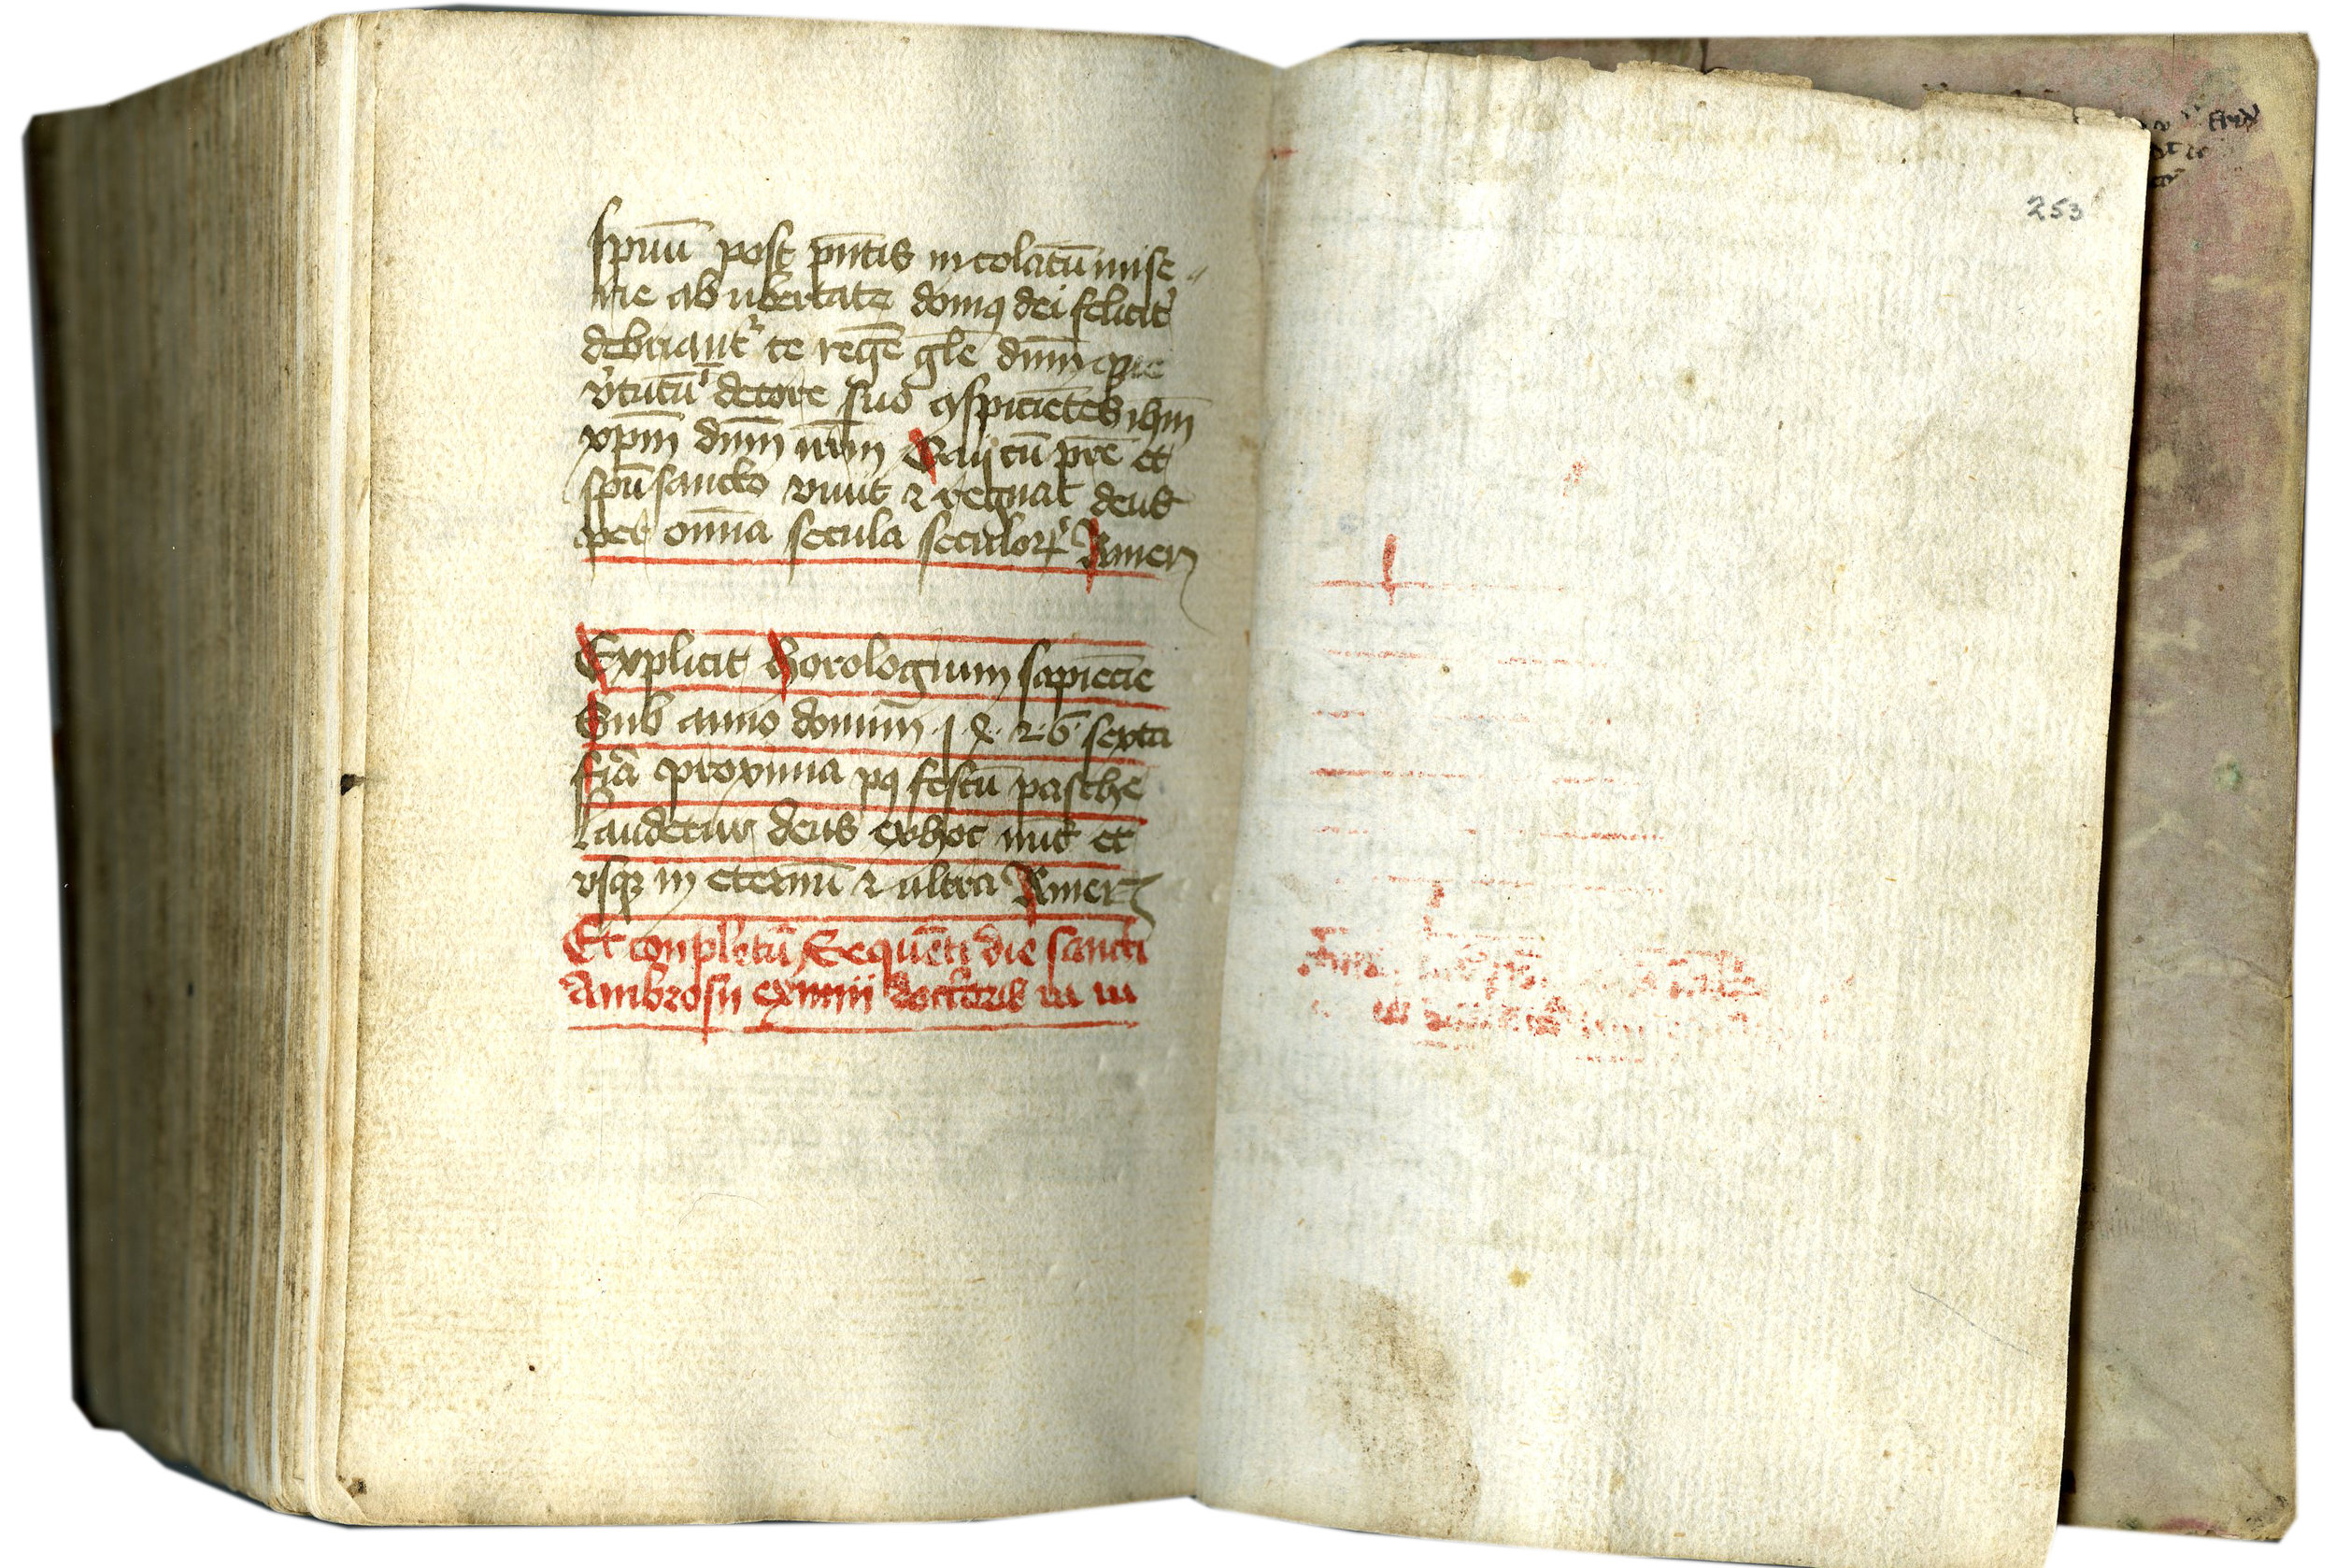 spūū post pn̄tis incolatū mise
rie ab ubertate domꝰ dei felicit̾
debriant᷑ te regē gl̄e dn̄m qꝫ
v̾tutū decore suo ꝯspiciētes ihm̄
xpm̄ dn̄m nr̄m Qui cū pr̄e et
spū sancto viuit ⁊ regnat deus
per om̄ia secula seculoꝝ Amen
Explicit Horologium sapiēcie
Sub anno domini 1·4·26· sexta
fīa proxima pꝰ festū pasche
Laudetur deus ex hoc nūc et
vsqꝫ in eternū ⁊ ultra Amen
Et conpletū Sequēti die sancti
Ambrosii eximii doctoris
253